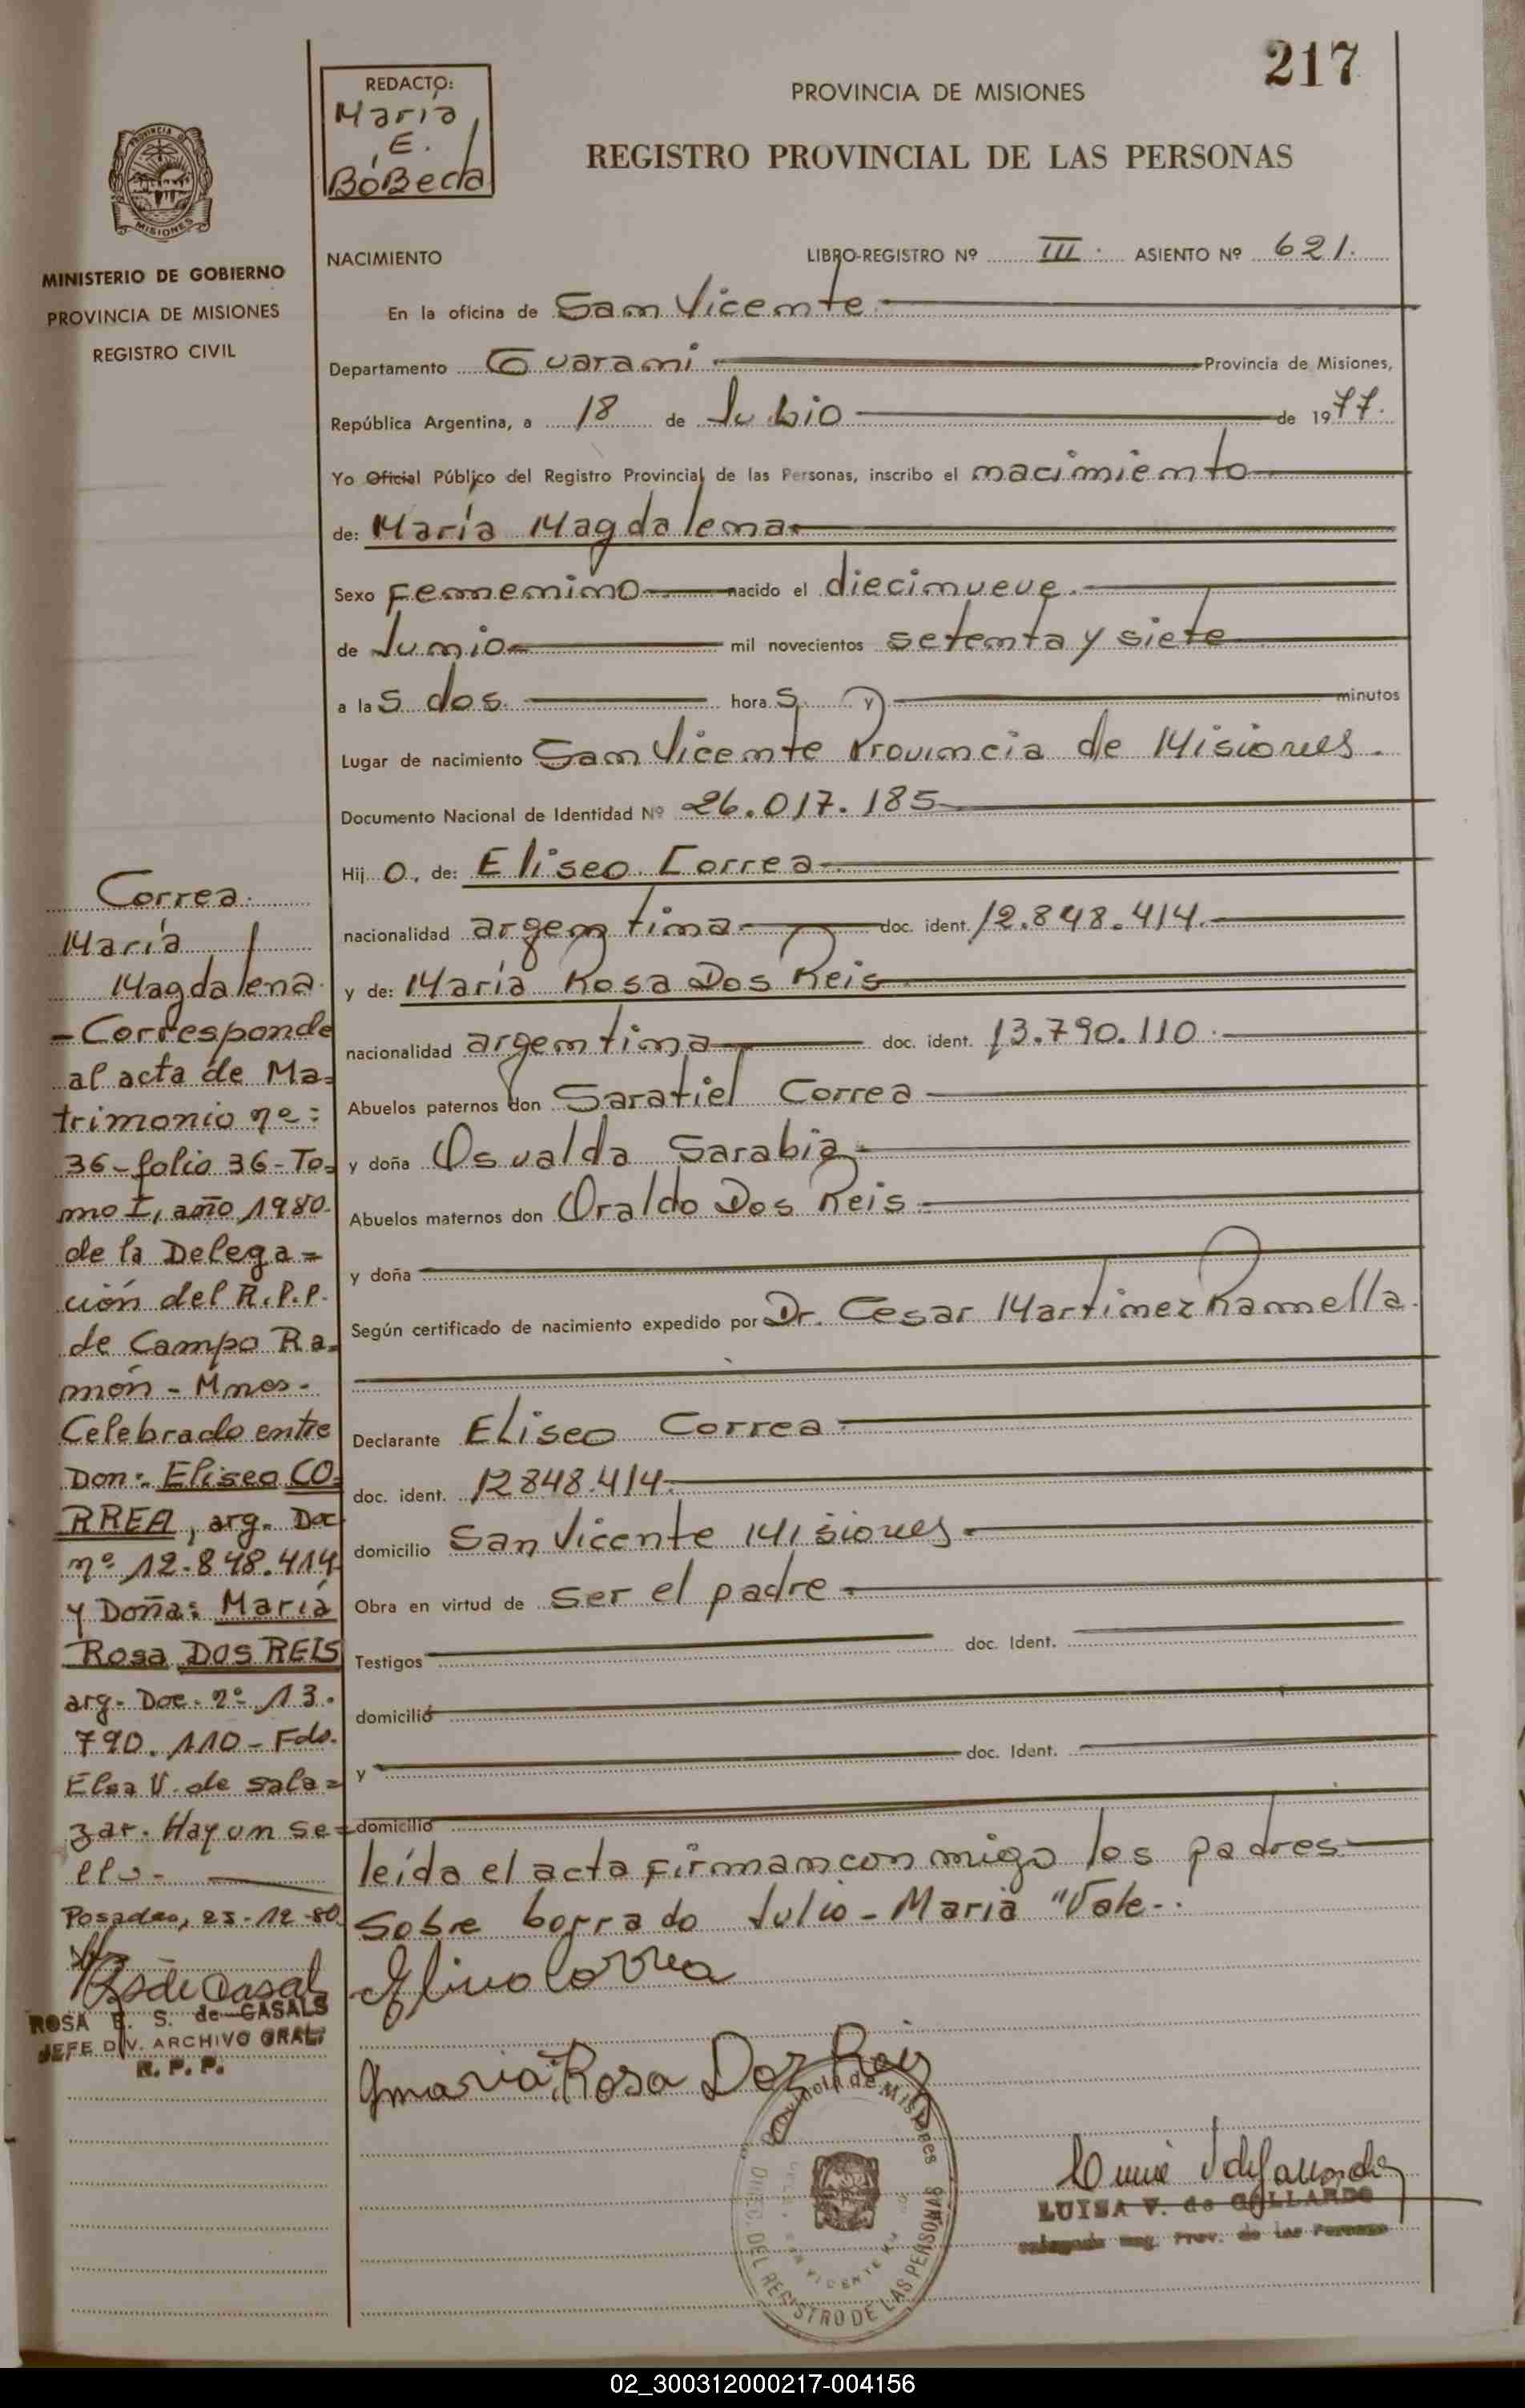 217
REDACTÓ:
María
E.
BóBeda
PROVINCIA DE MISIONES
REGISTRO PROVINCIAL DE LAS PERSONAS
MISIONES
MINISTERIO DE GOBIERNO
PROVINCIA DE MISIONES
REGISTRO CIVIL
NACIMIENTO LIBRO-REGISTRO Nº III. ASIENTO Nº 621.
En la oficina de San Vicente
Departamento Guarani Provincia de Misiones,
República Argentina, a 18 de Julio de 1977.
Yo Oficial Público del Registro Provincial de las Personas, inscribo el nacimiento
de: María Magdalena
Sexo Femenino nacido el diecinueve
de Junio mil novecientos setenta y siete
a las dos. horas y minutos
Lugar de nacimiento San Vicente Provincia de Misiones.
Documento Nacional de Identidad Nº 26.017.185
Hij o. de: Eliseo Correa
nacionalidad argentina doc. ident. 12.848.414.
y de: María Rosa Dos Reis
nacionalidad argentina doc. ident. 13.790.110.
Abuelos paternos don Saratiel Correa
y doña Osvalda Sarabia
Abuelos maternos don Oraldo Dos Reis
y doña
Según certificado de nacimiento expedido por Dr. Cesar Martinez Rannella.
Declarante Eliseo Correa
doc. ident. 12848.414.
domicilio San Vicente Misiones
Obra en virtud de ser el padre
Testigos doc. Ident.
domicilio
y doc. Ident.
domicilio
leída el acta firman con migo los padres
Sobre borrado Julio - Maria "Vale-.
Eliseo Correa
Maria Rosa Dos Reis
Provincia de Misiones
DIREC. DEL REGISTRO DE LAS PERSONAS
LUISA V. de GALLARDO
Delegada Reg. Prov. de las Personas
Correa.
María
Magdalena.
- Corresponde
al acta de Ma=
trimonio nº:
36-folio 36-To=
mo I, año 1980.
de la Delega=
ción del R.P.P.
de Campo Ra=
món - Mnes-
Celebrado entre
Don: Eliseo CO=
RREA, arg. Doc
nº 12.848.414
y Doña: María
Rosa DOS REIS
arg. Doc. nº 13.
790.110 - Fdo.
Elsa V. de Sala=
zar. Hay un se=
llo-
Posadas, 23-12-80.
ROSA E. S. de CASALS
JEFE DIV. ARCHIVO GRAL.
R. P. P.
02_300312000217-004156